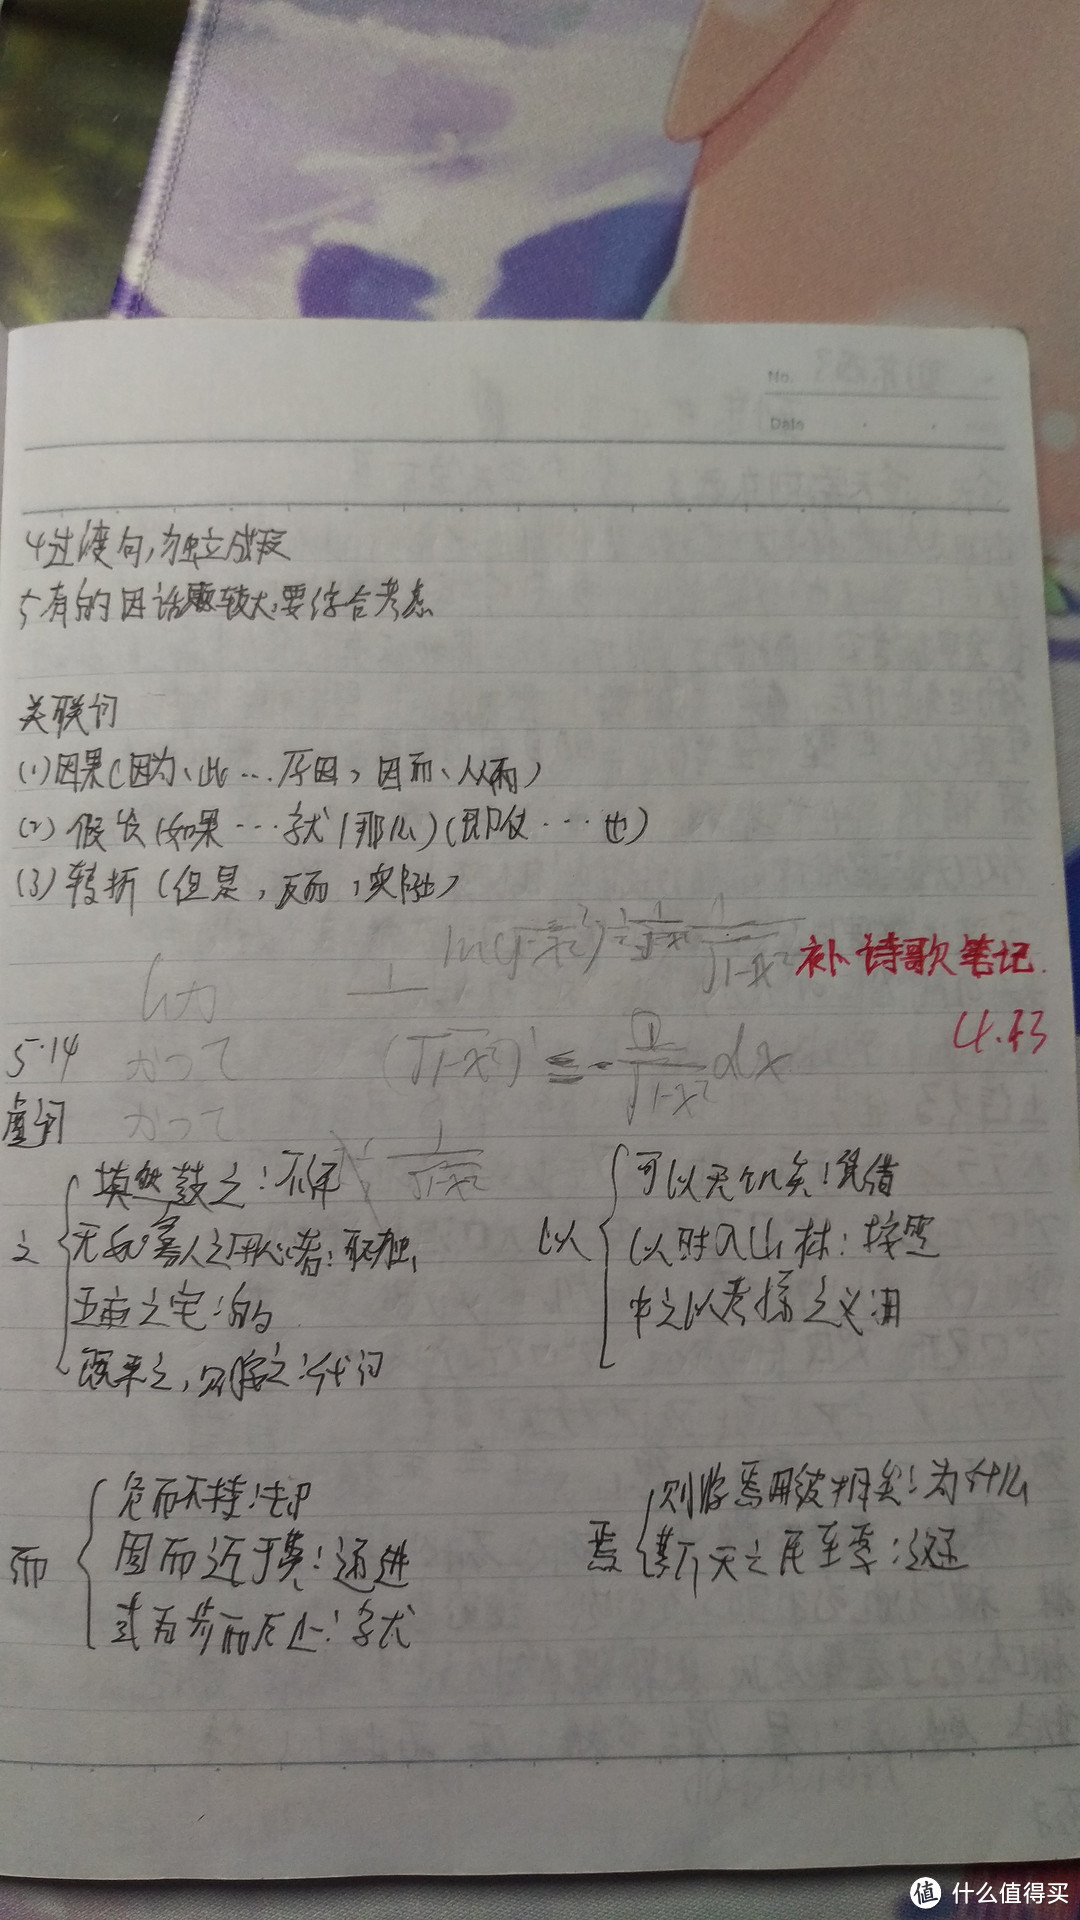 No.
Date
4过渡句,独立成段
5有的因话题较大,要综合考虑
关联词
(1)因果(因为、此…原因,因而、从而)
(2)假设(如果…就/那么)(即使…也)
(3)转折(但是,反而,实际)
补诗歌笔记
5.14
かつて
(√1-x²)'
dx
かつて
虚词
之
填然鼓之:不译
无如寡人之用心者:取独
五亩之宅:的
既来之,则安之:代词
以
可以无饥矣:凭借
以时入山林:按照
申之以孝悌之义:用
而
危而不持:却
固而近于费:递进
或百步而后止:就
焉
则将焉用彼相矣:为什么
斯天之民至焉:这
什么值得买